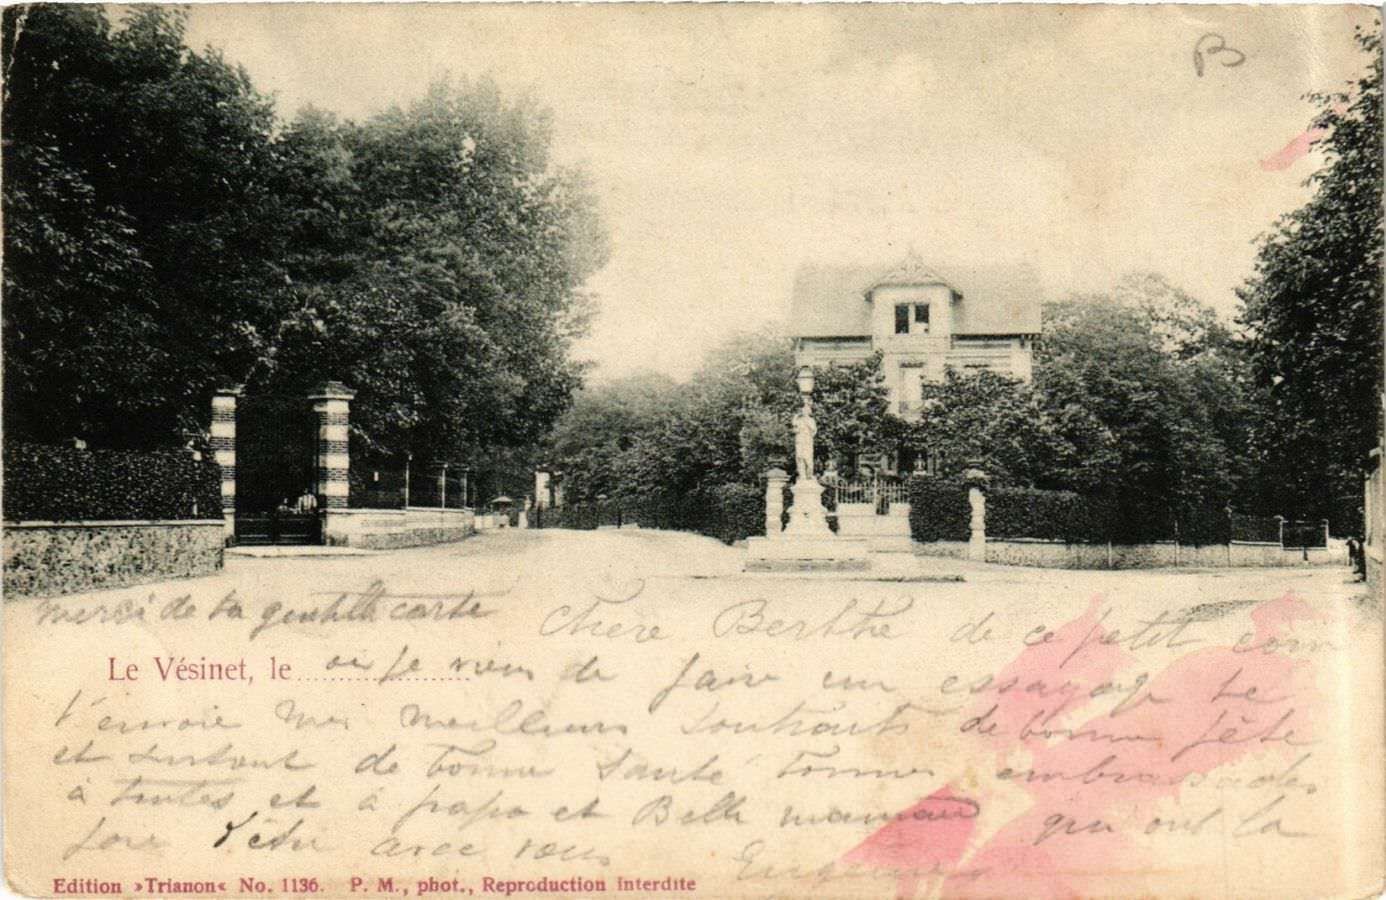 B
merci de ta gentille carte
Chere Berthe de ce petit coin
Le Vésinet, le
où je viens de faire un essayage je
t'envoie mes meilleurs souhaits de bonne fête
et surtout de bonne santé bonnes embrassades
à toutes et à papa et Belle maman qui ont la
joie d'être avec vous
Edition »Trianon« No. 1136. P. M., phot., Reproduction Interdite